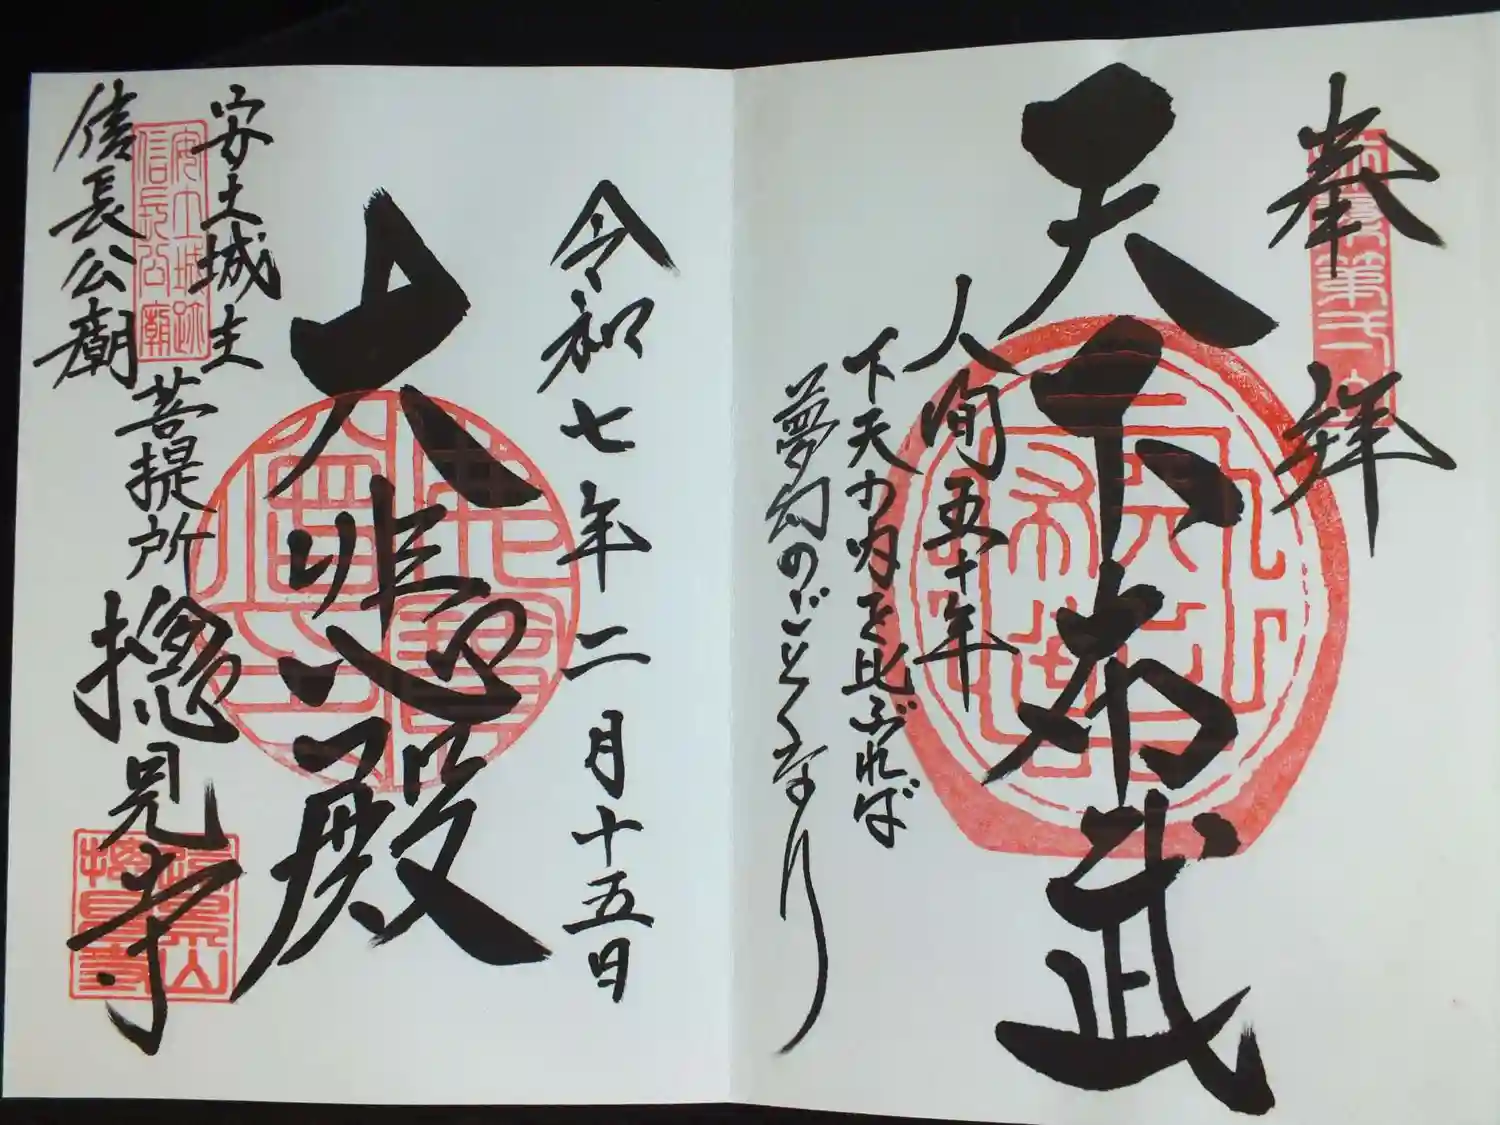 奉拝
天下布武
人間五十年
下天の内を比ぶれば
夢幻のごとくなり
令和七年二月十五日
大悲殿
安土城主
信長公廟
菩提所
摠見寺
安土城跡
信長公廟